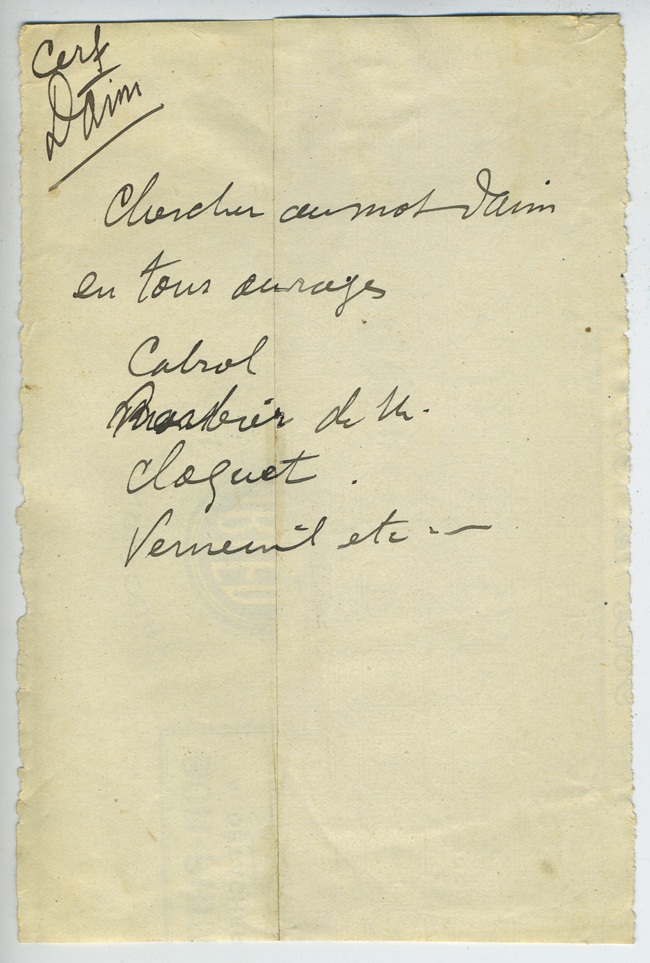 Cerf
Daim
Chercher au mot Daim
en tous ouvrages
Cabrol
de M.
Cloquet.
Verneuil etc --